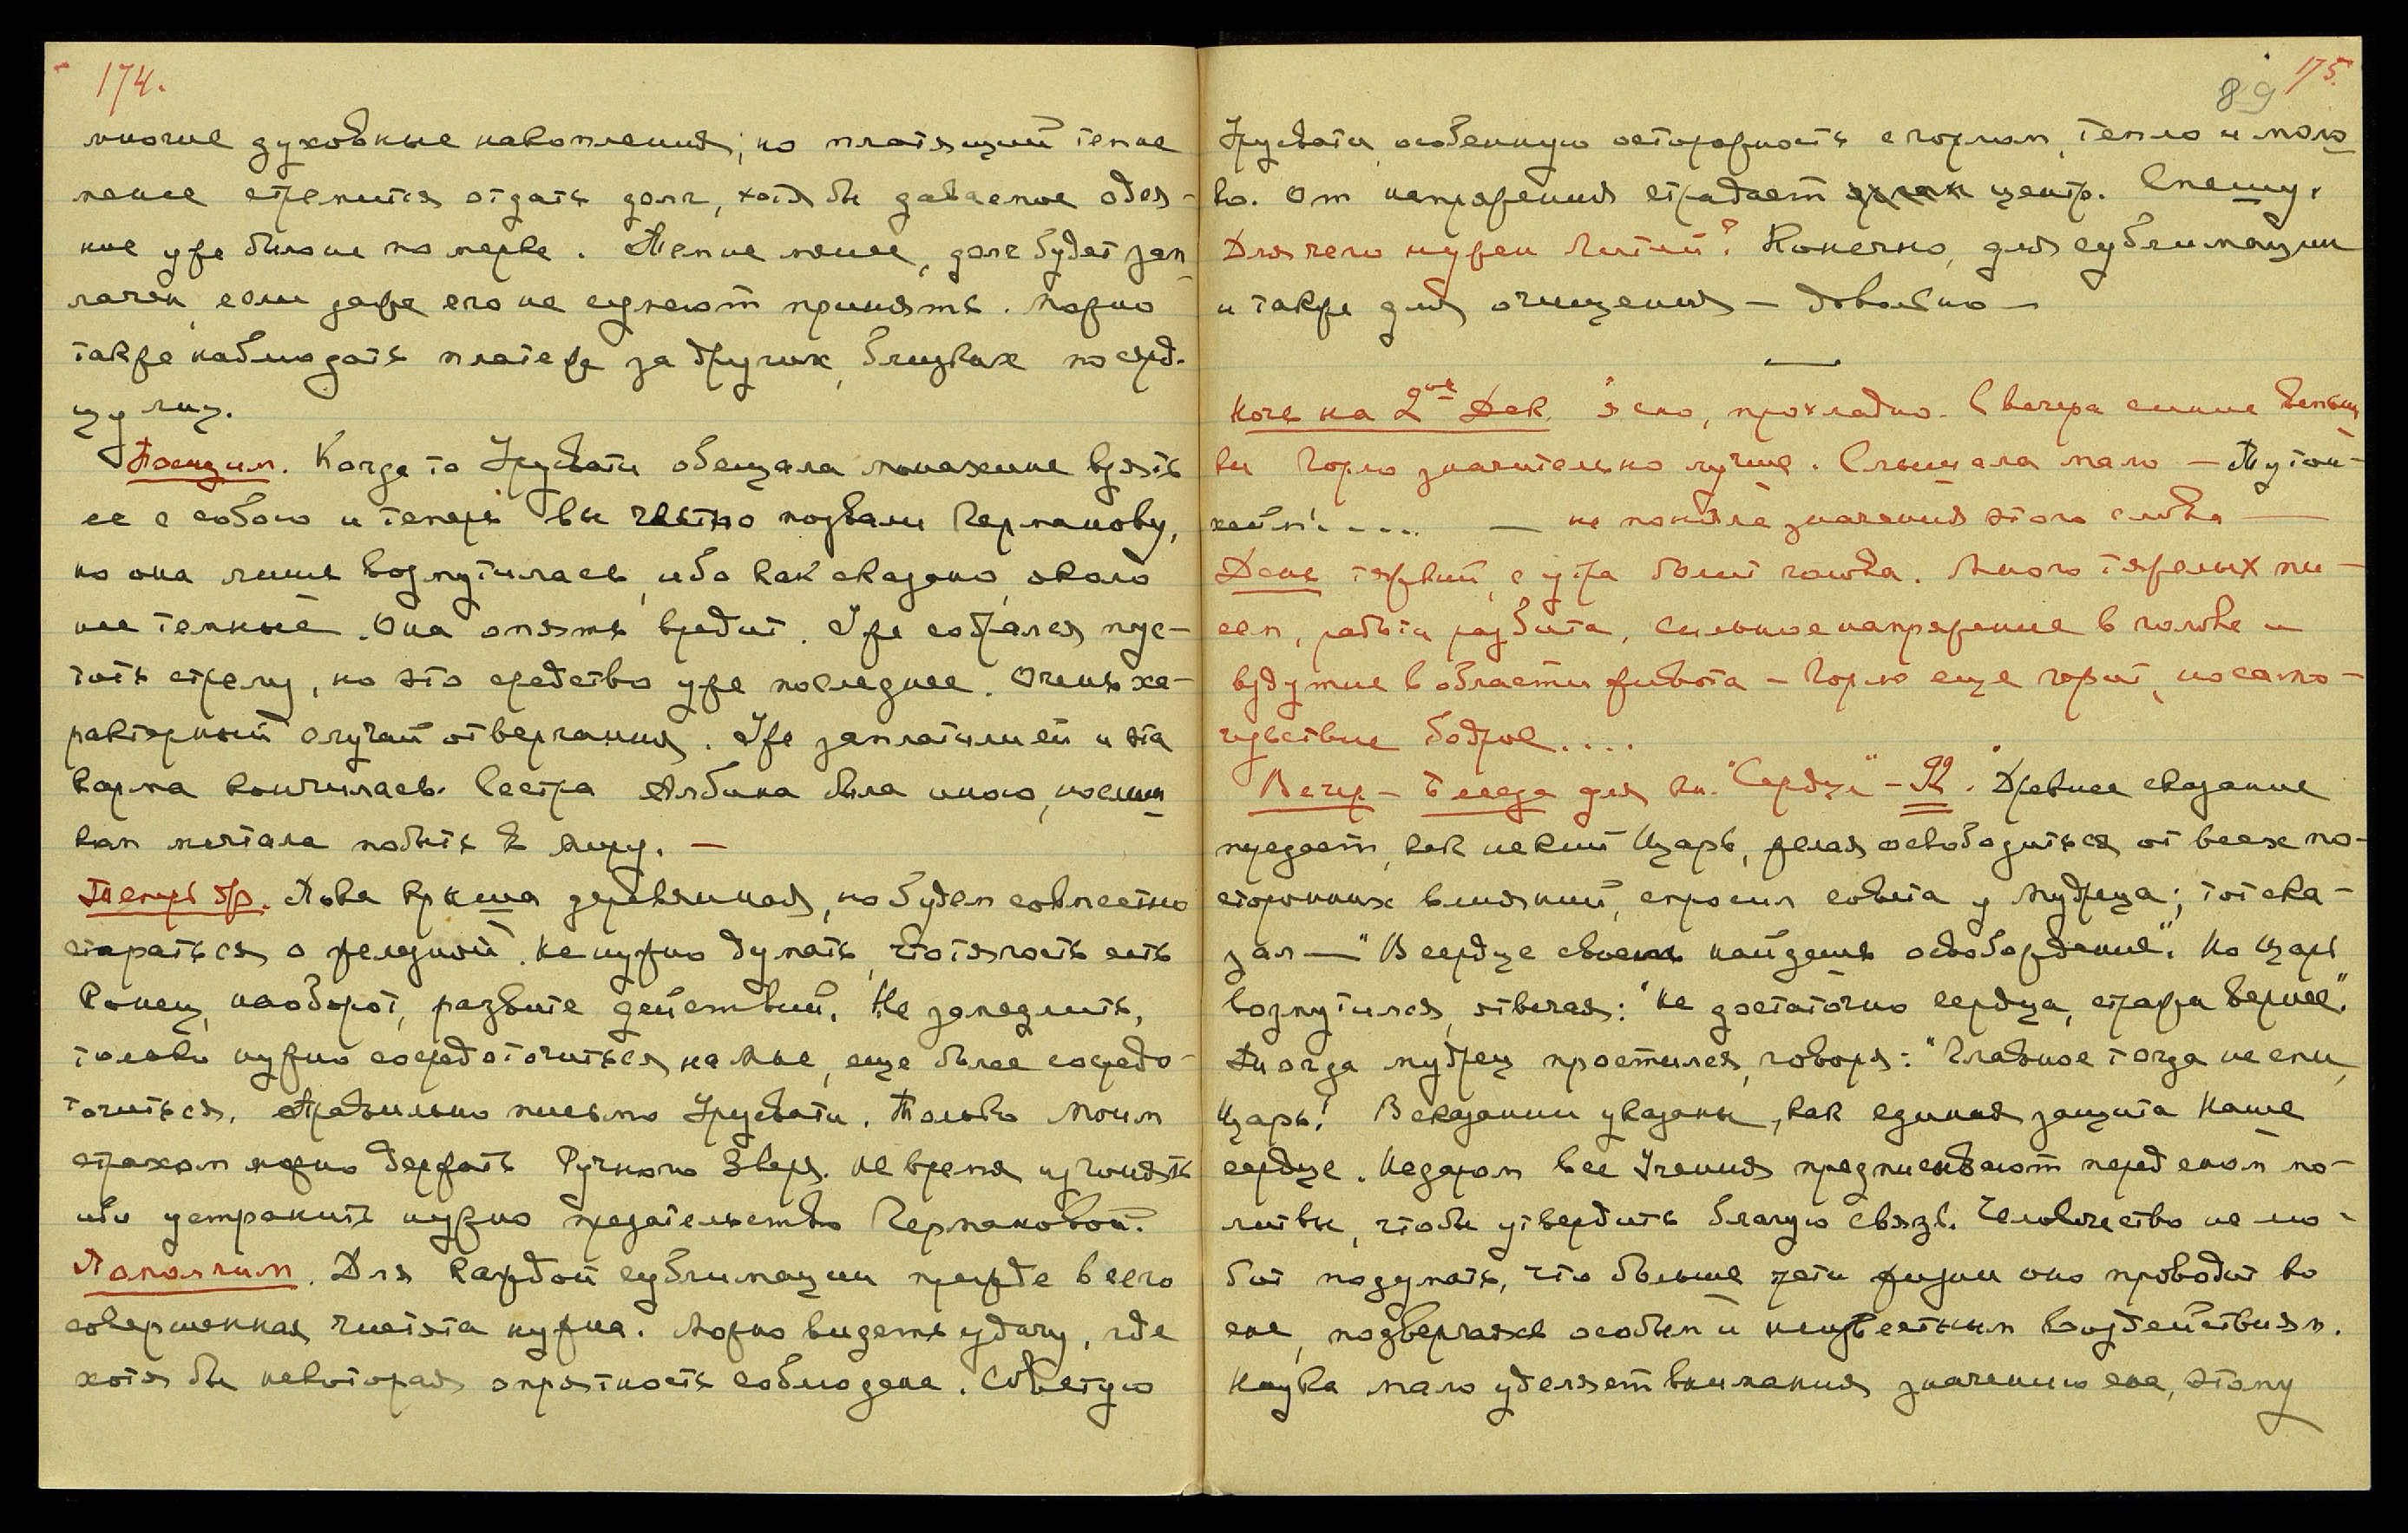 174.
многие духовные накопления; но платящий тем не
менее стремится отдать долг, хотя бы даваемое одея-
ние уже было не по мерке. Тем не менее, долг будет зап
лачен, если даже его не сумеют принять. Можно
также наблюдать платеж за других, близких по серд-
цу лиц.
Посидим. Когда то Урусвати обещала монахине взять
ее с собою и теперь вы честно позвали Германову,
но она лишь возмутилась, ибо как сказано, около
нее темные. Она опять вредит. Уже собрался пус-
тить стрелу, но это средство уже последнее. Очень ха-
рактерный случай отвергания. Уже заплатили ей и эта
карма кончилась. Сестра Альбина была иною, но слиш
ком мечтала побыть в миру. —
Теперь др. Пока крыша деревянная, но будем совместно
стараться о железной. Не нужно думать, что тягость есть
конец, наоборот, развитие действий. Не замедлить,
только нужно сосредоточиться на Мне, еще более сосредо-
точиться. Правильно письмо Урусвати. Только Моим
страхом можно держать Ручного Зверя. Не время изгонять
ибо устранить нужно предательство Германовой.
Пополним. Для каждой сублимации прежде всего
совершенная чистота нужна. Можно видеть удачу, где
хотя бы некоторая опрятность соблюдена. Советую
89 175.
Урусвати особенную осторожность с горлом, тепло и моло
ко. От напряжения страдает центр. Спешу.
Для чего нужен Литий? Конечно, для сублимации
и также для очищения — Довольно —
Ночь на 2ое Дек. Ясно, прохладно. С вечера синие вспыш
ки Горло значительно лучше. Слышала мало — Мутон-
хейм!.... — не поняла значения этого слова —
День тяжкий, с утра болит голова. Много тяжелых пи-
сем, работа разбита, сильное напряжение в голове и
вздутие в области живота — Горло еще горит, но само-
чувствие бодрое....
Вечер — Беседа для кн. "Сердце" — 92. "Древнее сказание
передает, как некий Царь, желая освободиться от всех по-
сторонних влияний, спросил совета у Мудреца; тот ска-
зал — "В сердце своем найдешь освобождение". Но Царь
возмутился, отвечая: "Не достаточно сердца, стража вернее".
Тогда мудрец простился, говоря: "Главное тогда не спи,
Царь! В сказании указаны, как единая защита Наше
сердце. Недаром все Учения предписывают перед сном мо-
литвы, чтобы утвердить благую связь. Человечество не лю-
бит подумать, что больше трети жизни оно проводит во
сне, подвергаясь особым и неизвестным воздействиям.
Наука мало уделяет внимания значению сна, этому